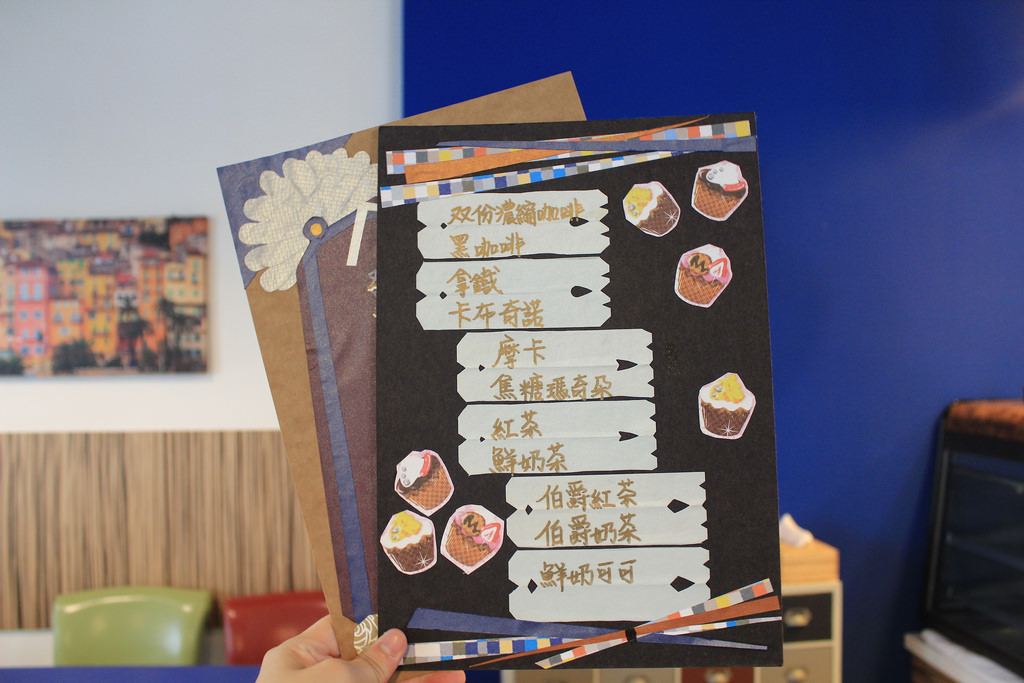 双份濃縮咖啡
黑咖啡
拿鐵
卡布奇諾
摩卡
焦糖瑪奇朵
紅茶
鮮奶茶
伯爵紅茶
伯爵奶茶
鮮奶可可